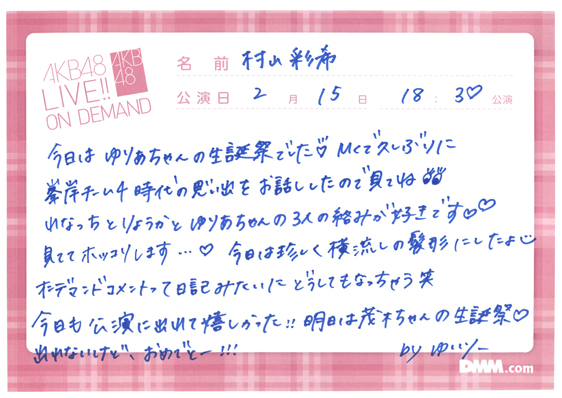 AKB48
LIVE!!
ON DEMAND
AKB
48
名前 村山彩希
公演日 2月15日 18:30♡公演
今日は ゆりあちゃんの生誕祭でした♡ MCで久しぶりに
峯岸チーム4時代の思い出をお話ししたので見てね
れなっちとりょうかとゆりあちゃんの3人の絡みが好きです♡♡
見ててホッコリします…♡ 今日は珍しく横流しの髪形にしたよ
オンデマンドコメントって日記みたいにどうしてもなっちゃう笑
今日も公演に出れて嬉しかった!! 明日は茂木ちゃんの生誕祭♡
出れないけど、おめでとー!!!
by ゆいりー
DMM.com